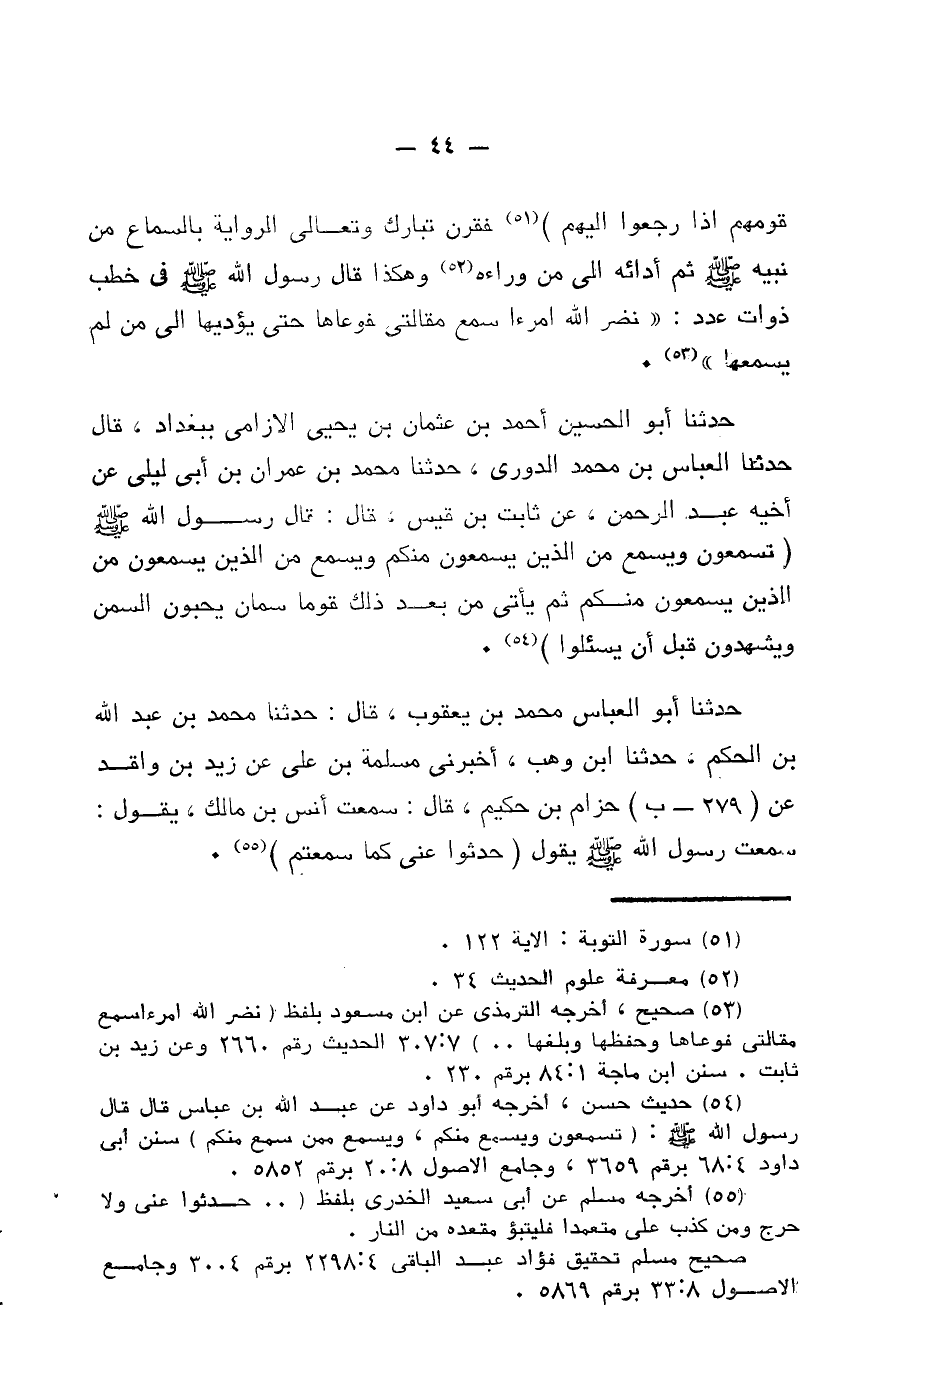 — ٤٤ —
قومهم اذا رجعوا اليهم )(٥١) فقرن تبارك وتعـالى الرواية بالسماع من
نبيه ﷺ ثم أدائه الى من وراءه(٥٢) وهكذا قال رسول الله ﷺ فى خطب
ذوات عدد : « نضر الله امرءا سمع مقالتى فوعاها حتى يؤديها الى من لم
يسمعها »(٥٣) .
حدثنا أبو الحسين أحمد بن عثمان بن يحيى الازامى ببغداد ، قال
حدثنا العباس بن محمد الدورى ، حدثنا محمد بن عمران بن أبى ليلى عن
أخيه عبـد الرحمن ، عن ثابت بن قيس ، قال : قال رسـول الله ﷺ
( تسمعون ويسمع من الذين يسمعون منكم ويسمع من الذين يسمعون من
الذين يسمعون منـكم ثم يأتى من بعـد ذلك قوما سمان يحبون السمن
ويشهدون قبل أن يسئلوا )(٥٤) .
حدثنا أبو العباس محمد بن يعقوب ، قال : حدثنا محمد بن عبد الله
بن الحكم ، حدثنا ابن وهب ، أخبرنى مسلمة بن على عن زيد بن واقـد
عن ( ٢٧٩ — ب ) حزام بن حكيم ، قال : سمعت أنس بن مالك ، يقـول :
سمعت رسول الله ﷺ يقول ( حدثوا عنى كما سمعتم )(٥٥) .
(٥١) سورة التوبة : الاية ١٢٢ .
(٥٢) معـرفة علوم الحديث ٣٤ .
(٥٣) صحيح ، أخرجه الترمذى عن ابن مسعود بلفظ ( نضر الله امرءاسمع
مقالتى فوعاها وحفظها وبلغها .. ) ٣٠٧:٧ الحديث رقم ٢٦٦٠ وعن زيد بن
ثابت . سنن ابن ماجة ٨٤:١ برقم ٢٣٠ .
(٥٤) حديث حسن ، أخرجه أبو داود عن عبـد الله بن عباس قال قال
رسول الله ﷺ : ( تسمعون ويسمع منكم ، ويسمع ممن سمع منكم ) سنن أبى
داود ٦٨:٤ برقم ٣٦٥٩ ، وجامع الاصول ٢٠:٨ برقم ٥٨٥٢ .
(٥٥) أخرجه مسلم عن أبى سعيد الخدرى بلفظ ( .. حـدثوا عنى ولا
حرج ومن كذب على متعمدا فليتبؤ مقعده من النار .
صحيح مسلم تحقيق فؤاد عبـد الباقى ٢٢٩٨:٤ برقم ٣٠٠٤ وجامـع
الاصـول ٣٣:٨ برقم ٥٨٦٩ .